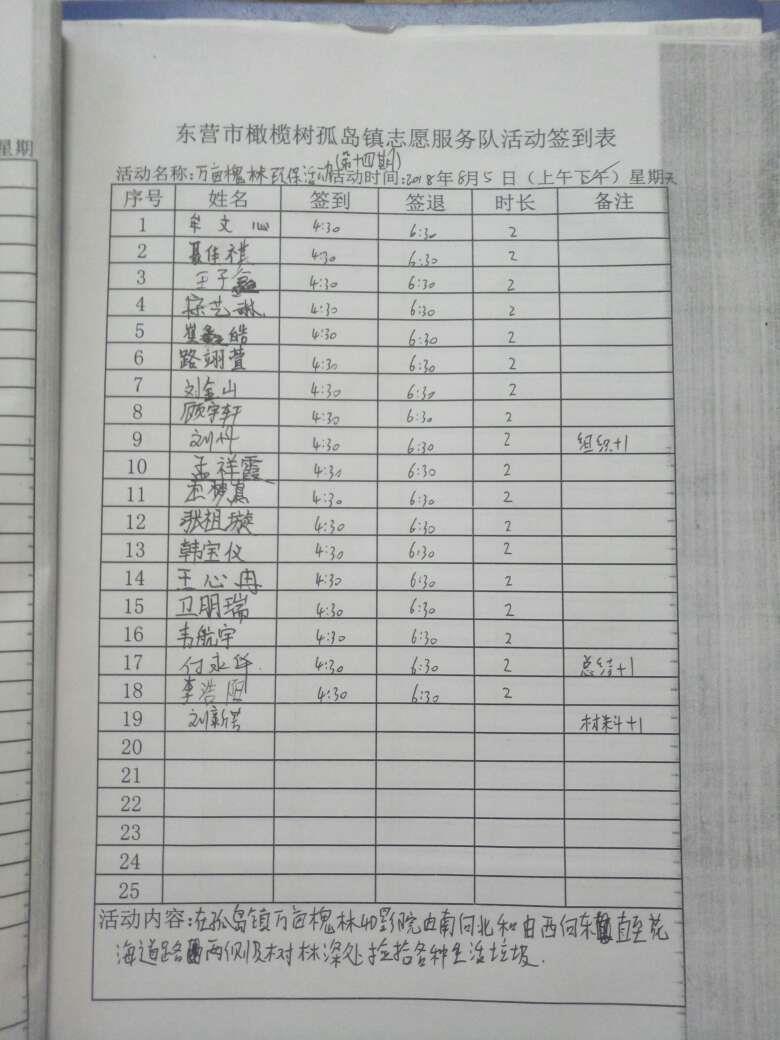 星期
东营市橄榄树孤岛镇志愿服务队活动签到表
(第十四期)
活动名称:万亩槐林环保活动 活动时间:2018年8月5日（上午下午）星期天
序号 姓名 签到 签退 时长 备注
1 牟文心 4:30 6:30 2
2 聂佳祺 4:30 6:30 2
3 王子 4:30 6:30 2
4 徐艺琳 4:30 6:30 2
5 皓 4:30 6:30 2
6 路翊萱 4:30 6:30 2
7 刘金山 4:30 6:30 2
8 顾宇轩 4:30 6:30 2
9 刘丹 4:30 6:30 2 组织+1
10 孟祥霞 4:30 6:30 2
11 4:30 6:30 2
12 张祖璇 4:30 6:30 2
13 韩宝仪 4:30 6:30 2
14 王心冉 4:30 6:30 2
15 卫朋瑞 4:30 6:30 2
16 韦航宇 4:30 6:30 2
17 付永华 4:30 6:30 2 总结+1
18 李浩 4:30 6:30 2
19 刘新芳 材料+1
20
21
22
23
24
25
活动内容:在孤岛镇万亩槐林4D影院由南向北和由西向东直至花
海道路两侧及树林深处捡拾各种生活垃圾.